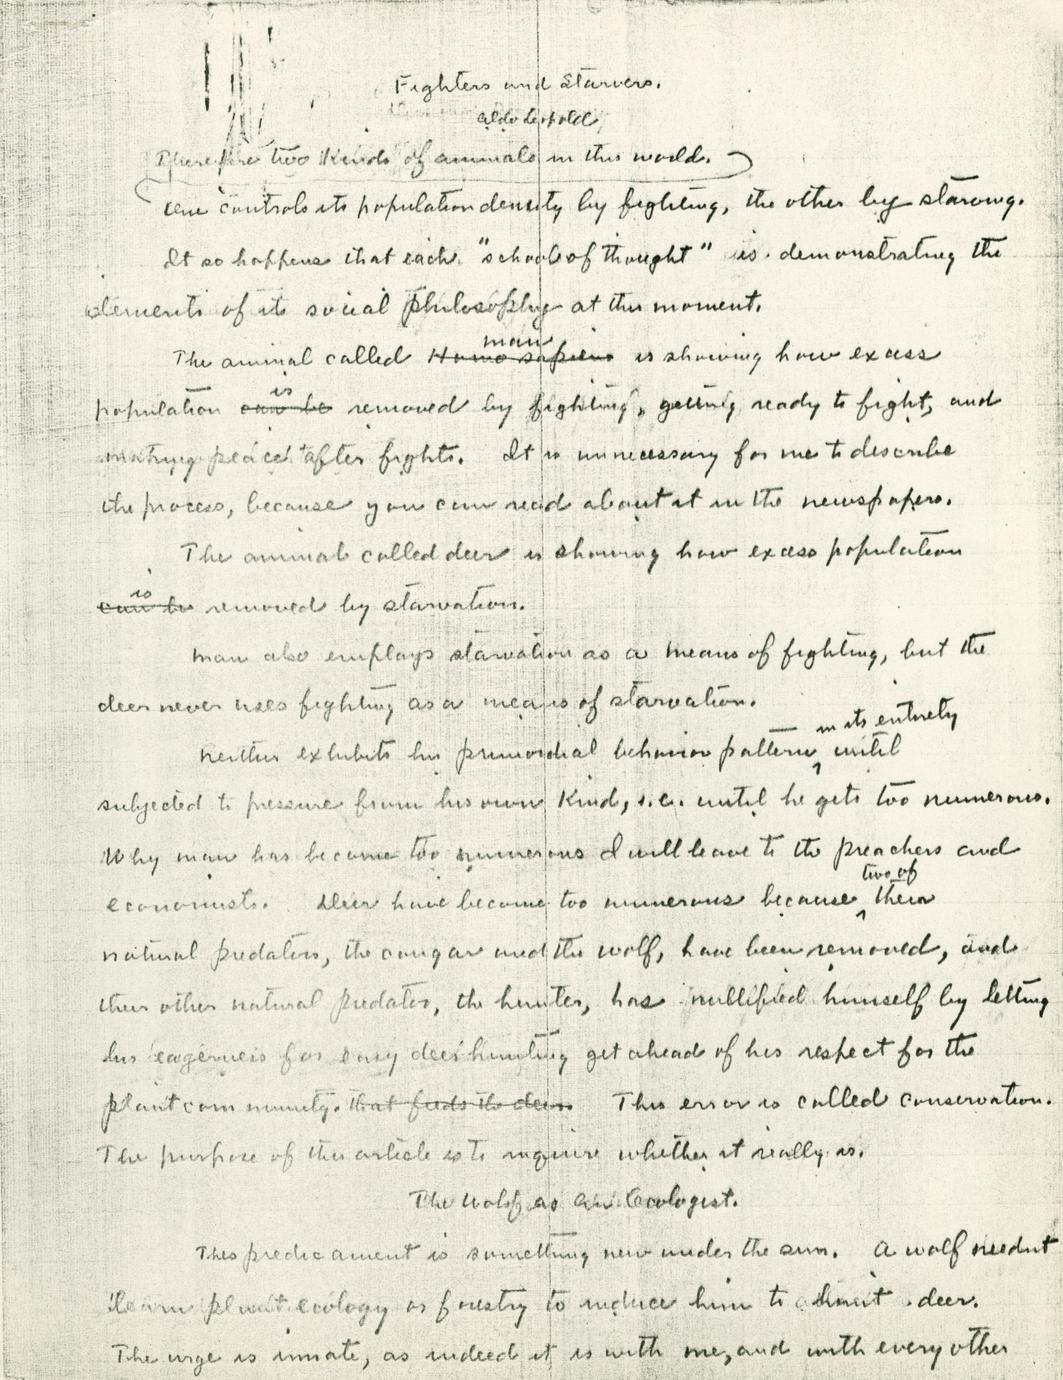 Fighters and Starvers.
Aldo Leopold
There are two kinds of animals in this world.
One controls its population density by fighting, the other by starving.
It so happens that each "school of thought" is demonstrating the
elements of its social philosophy at this moment.
man
The animal called Homo sapiens is showing how excess
is
population can be removed by fighting, getting ready to fight, and
making peace after fights. It is unnecessary for me to describe
the process, because you can read about it in the newspapers.
The animal called deer is showing how excess population
is
can be removed by starvation.
Man also employs starvation as a means of fighting, but the
deer never uses fighting as a means of starvation.
in its entirety
Neither exhibits his primordial behavior pattern ‸ until
subjected to pressure from his own kind, i.e. until he gets too numerous.
Why man has become too numerous I will leave to the preachers and
two of
economists. Deer have become too numerous because ‸ their
natural predators, the cougar and the wolf, have been removed, and
their other natural predator, the hunter, has nullified himself by letting
his eagerness for easy deer hunting get ahead of his respect for the
plant community. that feeds the deer. This error is called conservation.
The purpose of this article is to inquire whether it really is.
The Wolf as an Ecologist.
This predicament is something new under the sun. A wolf needn't
learn plant ecology or forestry to induce him to hunt deer.
The urge is innate, as indeed it is with me, and with every other